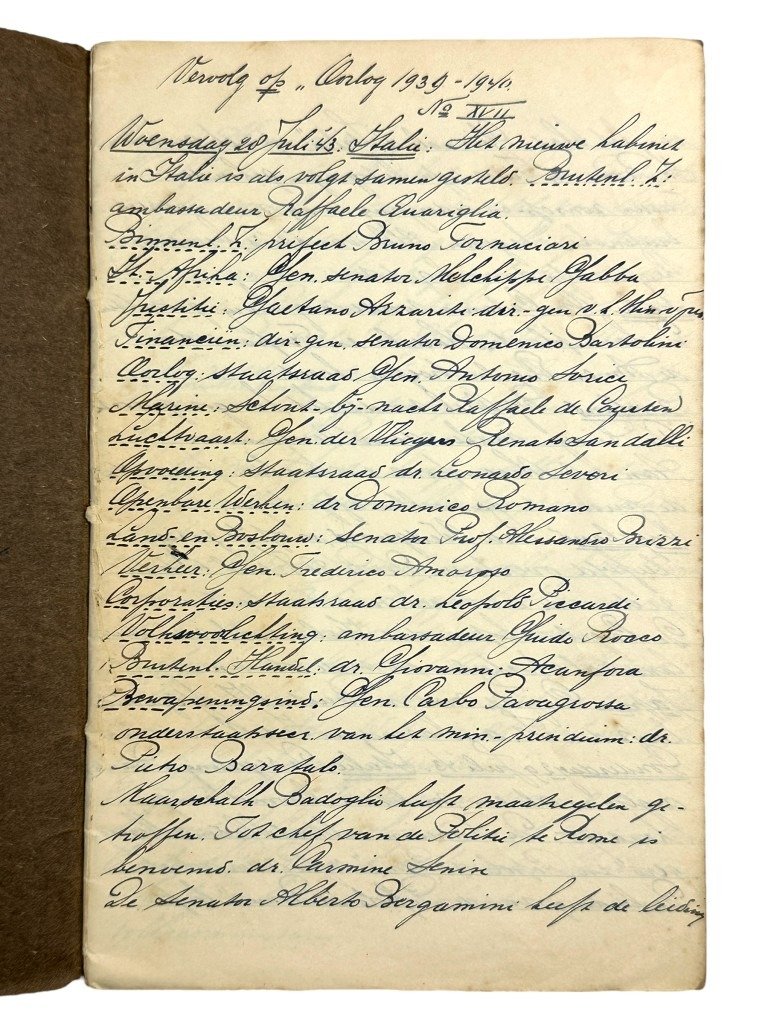 Vervolg op „Oorlog 1939-1940.
No XVII
Woensdag 28 Juli '43. Italië: Het nieuwe kabinet
in Italië is als volgt samengesteld. Buitenl. Z:
ambassadeur Raffaele Quariglia.
Binnenl. Z: prefect Bruno Fornaciari
It.-Afrika: Gen. senator Melchippe Gabba
Justitie: Gaetano Azzarite: dir.-gen v. h. Min v. jus.
Financien: dir-gen. senator Domenico Bartolini
Oorlog: staatsraad Gen. Antonio Sorice
Marine: Schout-bij-nacht Raffaele de Courten
Luchtvaart: Gen. der Vliegers Renato Sandalli
Opvoeding: staatsraad dr. Leonardo Severi
Openbare Werken: dr Domenico Romano
Land- en Bosbouw: Senator Prof. Alessandro Brizzi
Verkeer: Gen. Frederico Amoroso
Corporaties: staatsraad dr. Leopold Piccardi
Volksvoorlichting: ambassadeur Guido Rocco
Buitenl. Handel: dr. Giovanni Acanfora
Bewapeningsind: Gen. Carbo Favagrossa
onderstaatssecr. van het min.-presideum: dr.
Pietro Baratalo.
Maarschalk Badoglio heeft maatregelen ge-
troffen. Tot chef van de Politie te Rome is
benoemd. dr. Carmine Senise
De Senator Alberto Bergamini heeft de leiding